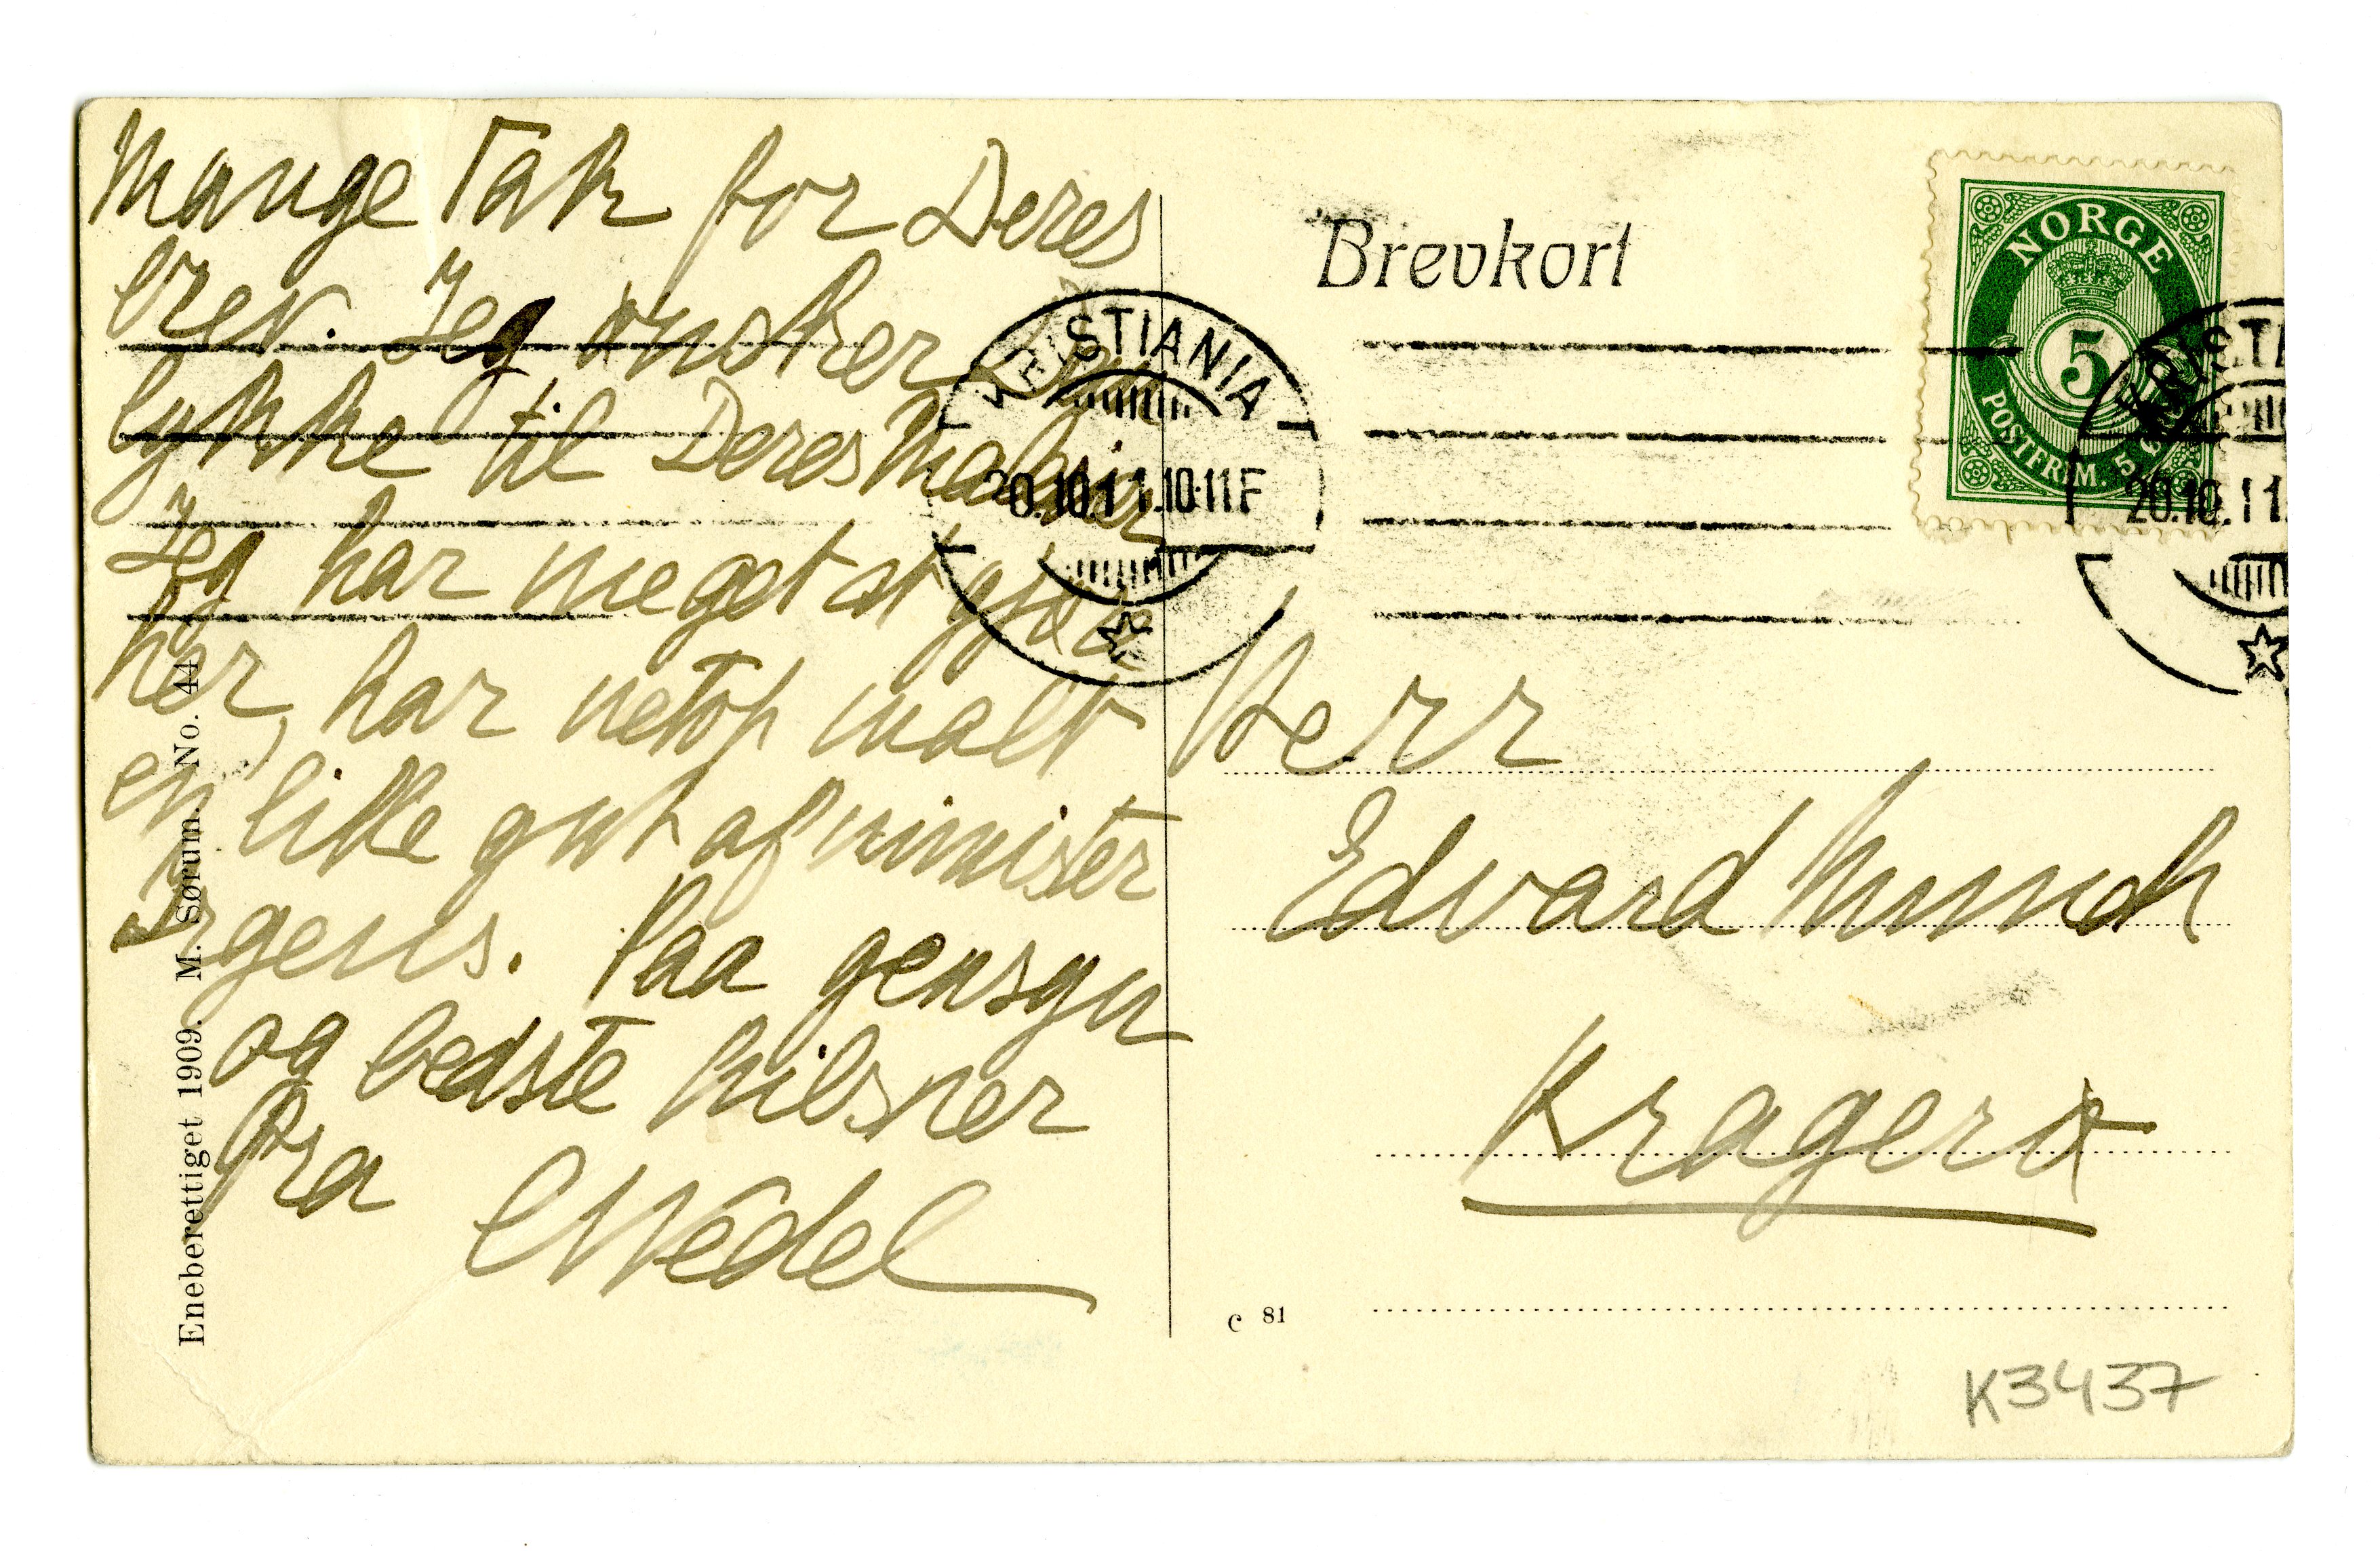 Mange Tak for Deres
brev. Jeg ønsker Dem
lykke til Deres Malerier
Jeg har meget at gjøre
her, har netop malt
en litke gut af minister
Irgens. Paa gensyn
og bedste hilsner
fra
Wedel
Eneberettiget 1909. M. Sørum. No. 44
Brevkort
NORGE
5
POSTFRIM. 5
KRISTIANIA
20.10.11.10-11F
KRISTIA
20.10.11.
Herr
Edvard Munch
Kragerø
c 81
K3437